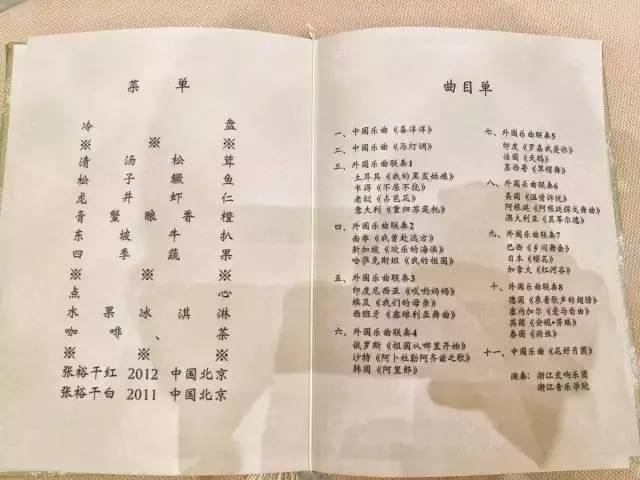 菜 单
冷 盘
※ ※
清 汤 松 茸
松 子 鳜 鱼
龙 井 虾 仁
膏 蟹 酿 香 橙
东 坡 牛 扒
四 季 蔬 果
※ ※
点 心
水 果 冰 淇 淋
咖 啡 、 茶
※ ※ ※
张裕干红 2012 中国北京
张裕干白 2011 中国北京
曲目单
一、中国乐曲《喜洋洋》
二、中国乐曲《马灯调》
三、外国乐曲联奏1
土耳其《我的黑发姑娘》
乍得《不屈不挠》
老挝《占芭花》
意大利《重归苏莲托》
四、外国乐曲联奏2
南非《我曾赴远方》
新加坡《欢乐的海滨》
哈萨克斯坦《我的祖国》
五、外国乐曲联奏3
印度尼西亚《哎哟妈妈》
埃及《我们的母亲》
西班牙《塞维利亚舞曲》
六、外国乐曲联奏4
俄罗斯《祖国从哪里开始》
沙特《阿卜杜勒阿齐兹之歌》
韩国《阿里郎》
七、外国乐曲联奏5
印度《罗嘉我爱你》
法国《天鹅》
墨西哥《草帽舞》
八、外国乐曲联奏6
美国《温情诉忧》
阿根廷《阿根廷探戈舞曲》
澳大利亚《莫尔德》
九、外国乐曲联奏7
巴西《乡间舞会》
日本《樱花》
加拿大《红河谷》
十、外国乐曲联奏8
德国《乘着歌声的翅膀》
塞内加尔《爱与自由》
英国《安妮•劳瑞》
泰国《雨丝》
十一、中国乐曲《花好月圆》
演奏：浙江交响乐团
浙江音乐学院